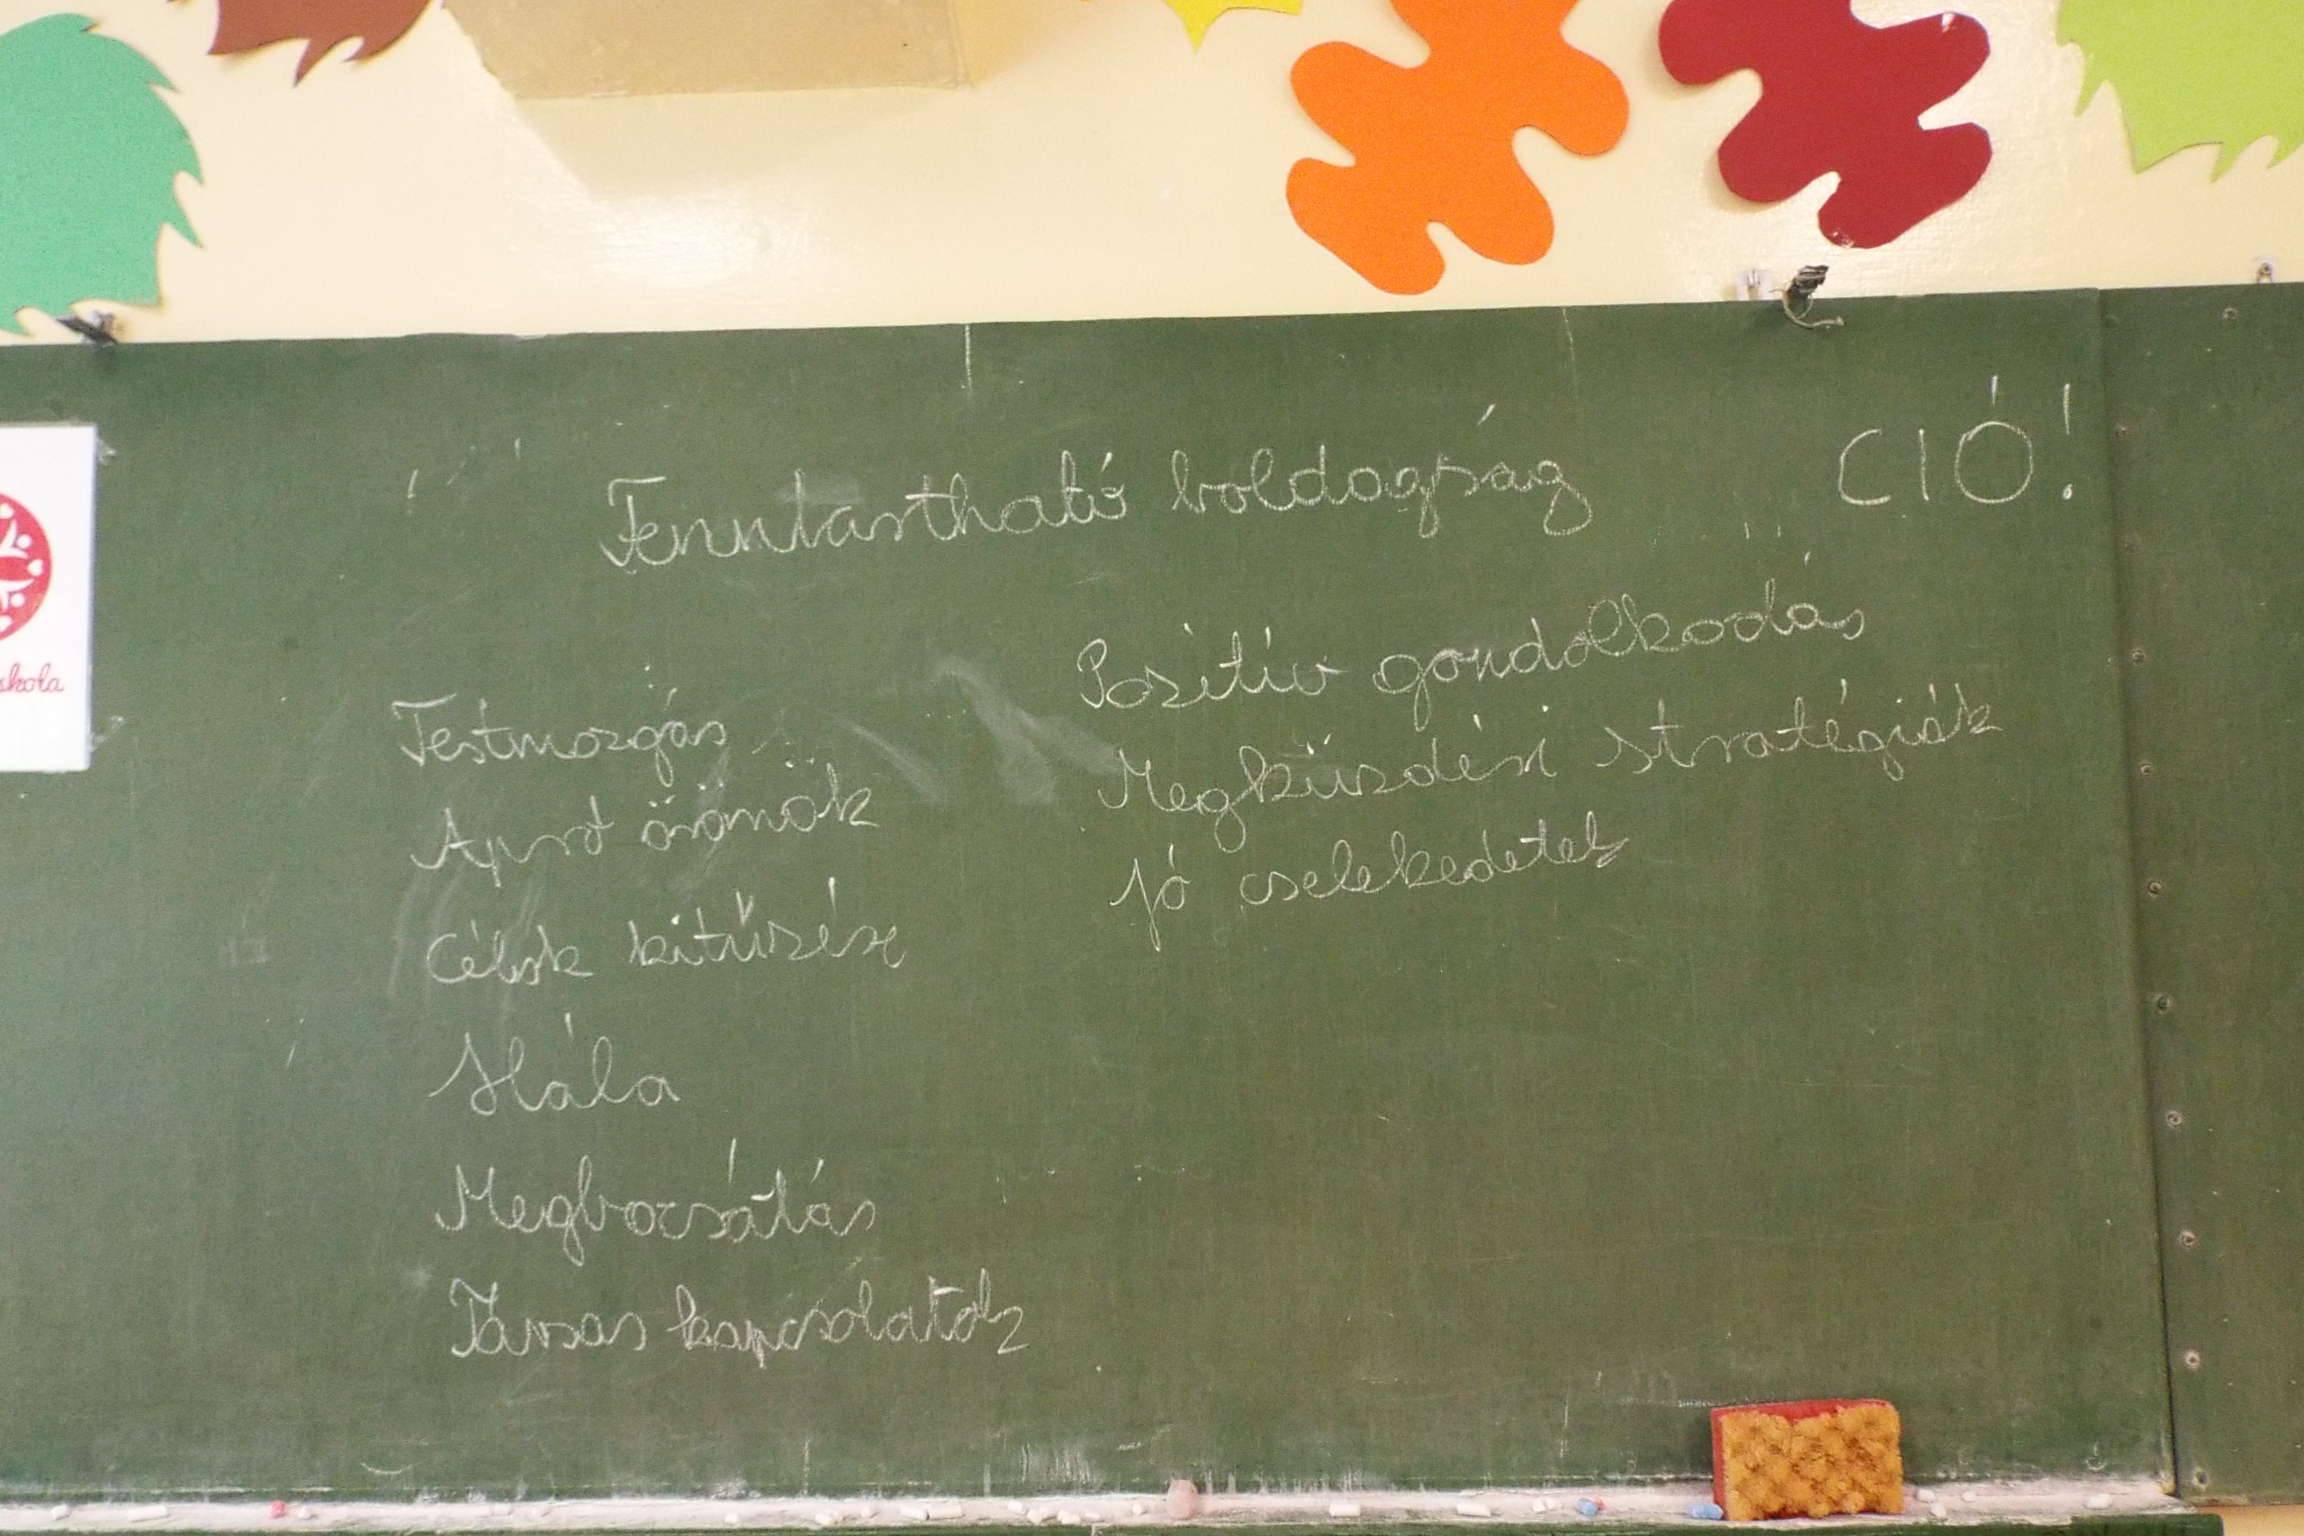 Fenntartható boldogság
CIÓ!
Testmozgás
Apró örömök
Célok kitűzése
Hála
Megbocsátás
Társas kapcsolatok
Pozitív gondolkodás
Megküzdési stratégiák
Jó cselekedetek
skola